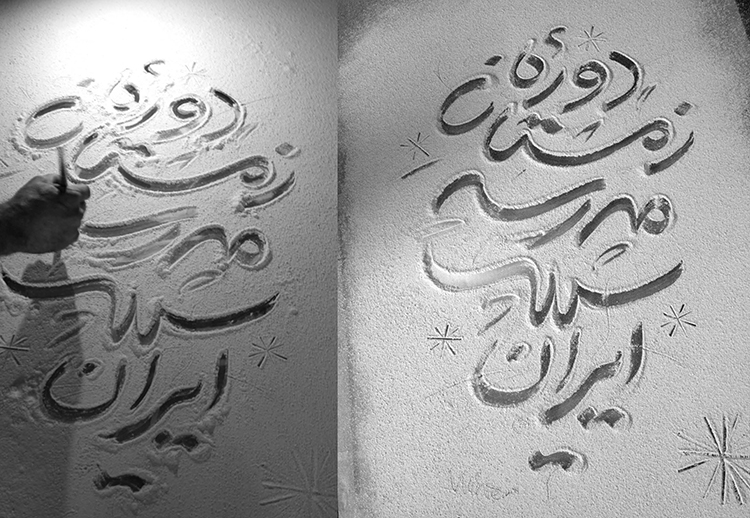 دورهٔ
زمستان
مدرسه
ایران
دورهٔ
زمستان
مدرسه
ایران